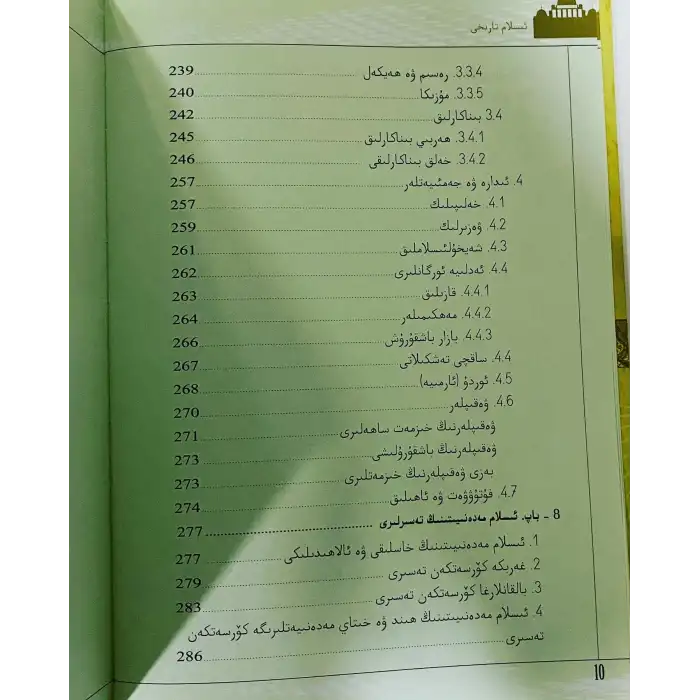 ئىسلام تارىخى
3.3.4. رەسىم ۋە ھەيكەل ........ 239
3.3.5. مۇزىكا ........ 240
3.4 بىناكارلىق ........ 242
3.4.1. ھەربىي بىناكارلىق ........ 245
3.4.2. خەلق بىناكارلىقى ........ 246
4. ئىدارە ۋە جەمئىيەتلەر ........ 257
4.1. خەلىپىلىك ........ 257
4.2. ۋەزىرلىك ........ 259
4.3. شەيخۇلئىسلاملىق ........ 261
4.4 ئەدلىيە ئورگانلىرى ........ 262
4.4.1. قازىلىق ........ 263
4.4.2. مەھكىمىلەر ........ 264
4.4.3. بازار باشقۇرۇش ........ 266
4.4. ساقچى تەشكىلاتى ........ 267
4.5. ئوردۇ (ئارمىيە) ........ 268
4.6. ۋەقىپلەر ........ 270
ۋەقىپلەرنىڭ خىزمەت ساھەلىرى ........ 271
ۋەقىپلەرنىڭ باشقۇرۇلىشى ........ 273
بەزى ۋەقىپلەرنىڭ خىزمەتلىرى ........ 273
4.7. فۇتۇۋۋەت ۋە ئاھىلىق ........ 274
8 - باپ. ئىسلام مەدەنىيىتىنىڭ تەسىرلىرى ........ 277
1. ئىسلام مەدەنىيىتىنىڭ خاسلىقى ۋە ئالاھىدىلىكى ........ 277
2. غەربكە كۆرسەتكەن تەسىرى ........ 279
3. بالقانلارغا كۆرسەتكەن تەسىرى ........ 283
4. ئىسلام مەدەنىيىتىنىڭ ھىند ۋە خىتاي مەدەنىيەتلىرىگە كۆرسەتكەن
تەسىرى ........ 286
10